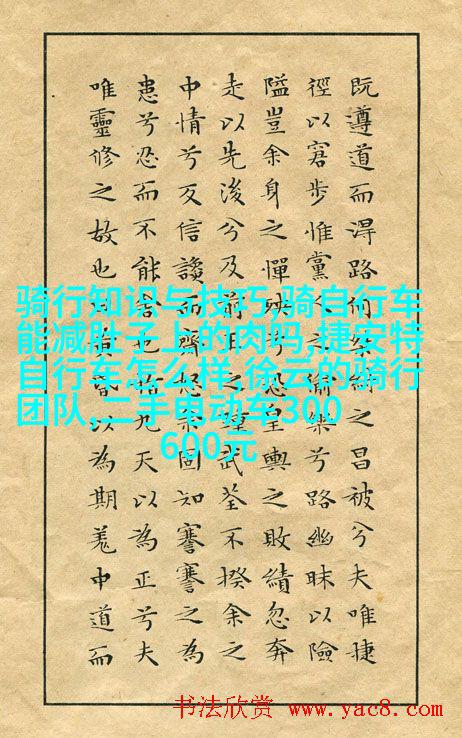 既遵道而得路何桀紂之昌被兮夫唯捷
徑以窘步惟黨人之偷樂兮路幽昧以險
隘豈余身之憚殃兮恐皇輿之敗績忽奔
走以先後兮及前王之踵武荃不揆余之
中情兮反信讒而齊怒余固知謇謇之為
患兮忍而不能舍也指九天以為正兮夫
唯靈修之故也曰黃昏以為期羌中道而
骑行知识与技巧,骑自行车
能减肚子上的肉吗,捷安特
自行车怎么样,徐云的骑行
团队,二手电动车300
600元
书法欣赏 www.yac8.com